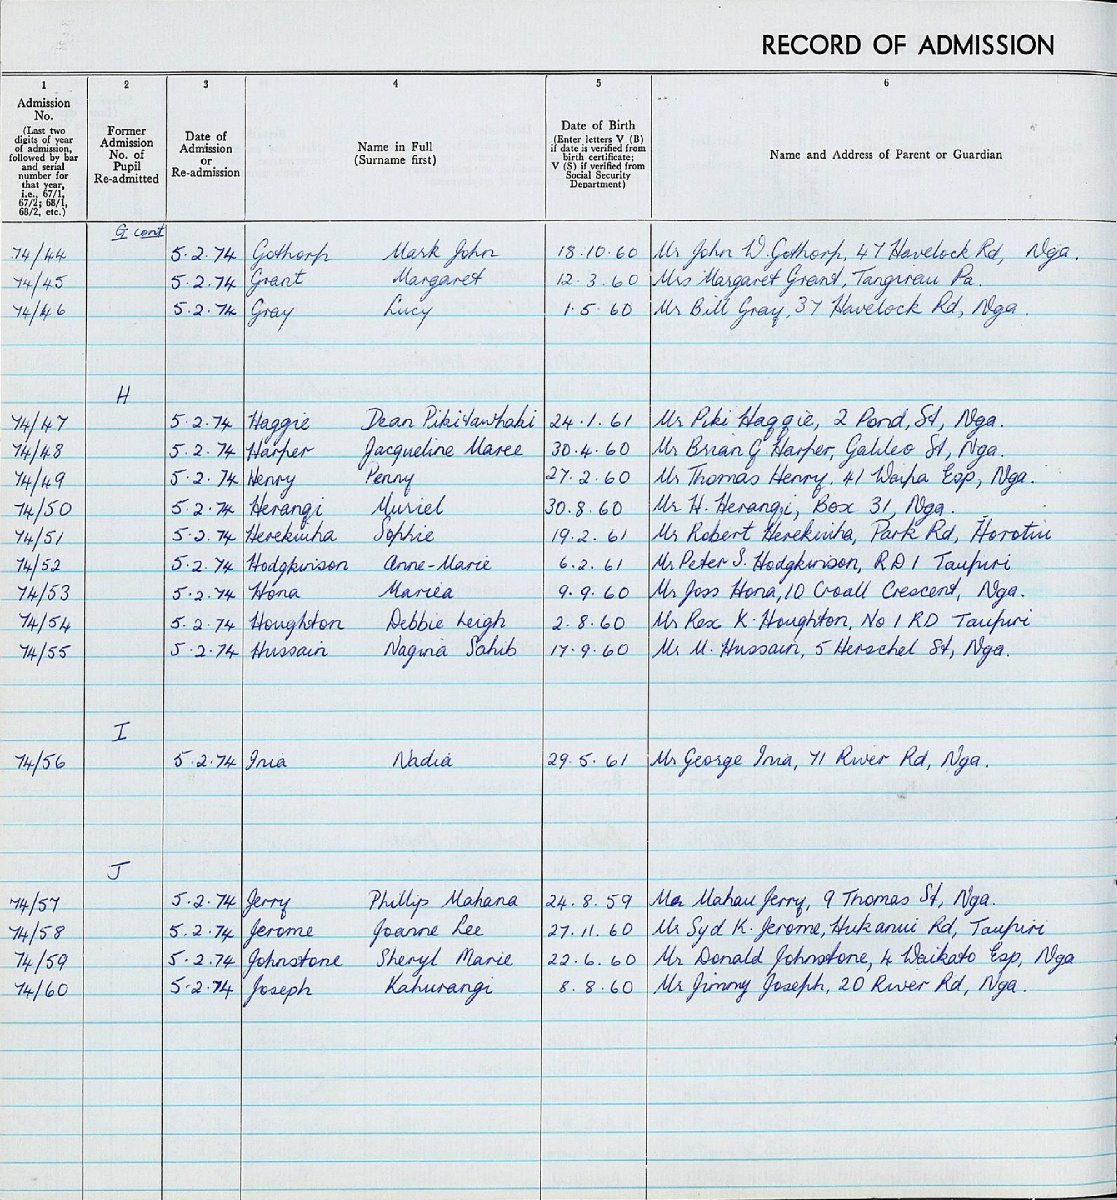 RECORD OF ADMISSION
1 2 3 4 5 6
Admission No. (Last two digits of year of admission, followed by bar and serial number for that year, i.e., 67/1, 67/2; 68/1, 68/2, etc.)
Former Admission No. of Pupil Re-admitted
Date of Admission or Re-admission
Name in Full (Surname first)
Date of Birth (Enter letters V (B) if date is verified from birth certificate; V (S) if verified from Social Security Department)
Name and Address of Parent or Guardian
G cont
74/44 5.2.74 Gothorp Mark John 18.10.60 Mr John W. Gothorp, 47 Havelock Rd, Nga.
74/45 5.2.74 Grant Margaret 12.3.60 Mrs Margaret Grant, Tangirau Pa.
74/46 5.2.74 Gray Lucy 1.5.60 Mr Bill Gray, 37 Havelock Rd, Nga.
H
74/47 5.2.74 Haggie Dean 24.1.61 Mr Piki Haggie, 2 Pond, St, Nga.
74/48 5.2.74 Harper Jacqueline Maree 30.4.60 Mr Brian G Harper, Galileo St, Nga.
74/49 5.2.74 Henry Penny 27.2.60 Mr Thomas Henry, 41 Waipa Esp, Nga.
74/50 5.2.74 Herangi Muriel 30.8.60 Mr H. Herangi, Box 31, Nga.
74/51 5.2.74 Herekiuha Sophie 19.2.61 Mr Robert Herekiuha, Park Rd, Horotiu
74/52 5.2.74 Hodgkinson Anne-Marie 6.2.61 Mr Peter S. Hodgkinson, RD1 Taupiri
74/53 5.2.74 Hona Mariea 9.9.60 Mr Joss Hona, 10 Croall Crescent, Nga.
74/54 5.2.74 Houghton Debbie Leigh 2.8.60 Mr Rex K. Houghton, No 1 RD Taupiri
74/55 5.2.74 Hussain Nagina Sahib 17.9.60 Mr M. Hussain, 5 Herschel St, Nga.
I
74/56 5.2.74 Inia Nadia 29.5.61 Mr George Inia, 71 River Rd, Nga.
J
74/57 5.2.74 Jerry Phillip Mahana 24.8.59 Mahau Jerry, 9 Thomas St, Nga.
74/58 5.2.74 Jerome Joanne Lee 27.11.60 Mr Syd K. Jerome, Hukanui Rd, Taupiri
74/59 5.2.74 Johnstone Sheryl Marie 22.6.60 Mr Donald Johnstone, 4 Waikato Esp, Nga
74/60 5.2.74 Joseph Kahurangi 8.8.60 Mr Jimmy Joseph, 20 River Rd, Nga.